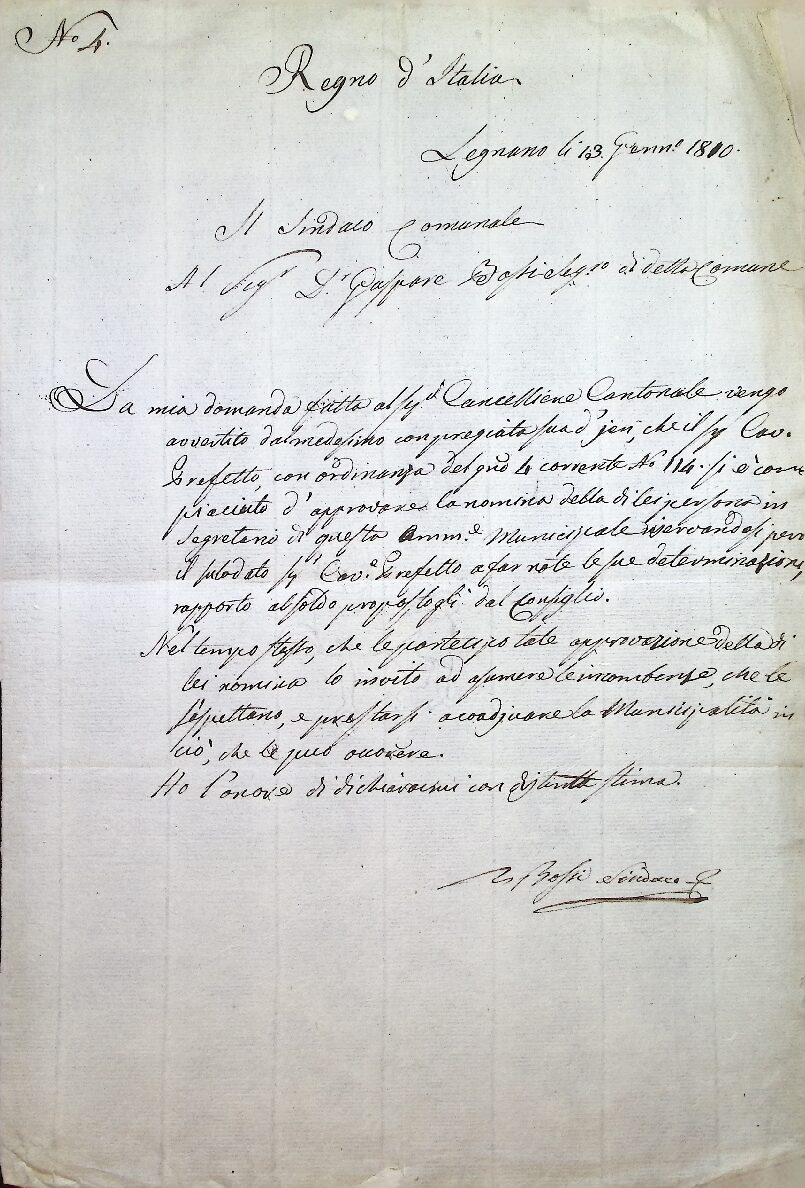 N.º 4.
Regno d'Italia.
Legnano li 13. Genn.º 1810.
Il Sindaco Comunale
Al Sig.r D.r Gaspare Bossi Seg.rio di detta Comune
La mia domanda fatta al Sig.r Cancelliere Cantonale vengo
avvertito dal medesimo con pregiata sua d'jeri, che il Sig. Cav.
Prefetto, con ordinanza del 4 corrente N.º 114. si è com
piaciuto d'approvare la nomina della di lei persona in
Segretario di questa Amm.e Municipale riservandosi però
il sulodato Sig.r Cav.e Prefetto a far note le sue determinazioni,
rapporto al soldo propostogli dal Consiglio.
Nel tempo stesso, che le partecipo tale approvazione della di
lei nomina lo invito ad assumere le incombenze, che le
s'espettano, e prestarsi a coadjuvare la Municipalità in
ciò, che le può occorere.
Ho l'onore di dichiararmi con distinta stima.
Bossi Sindaco